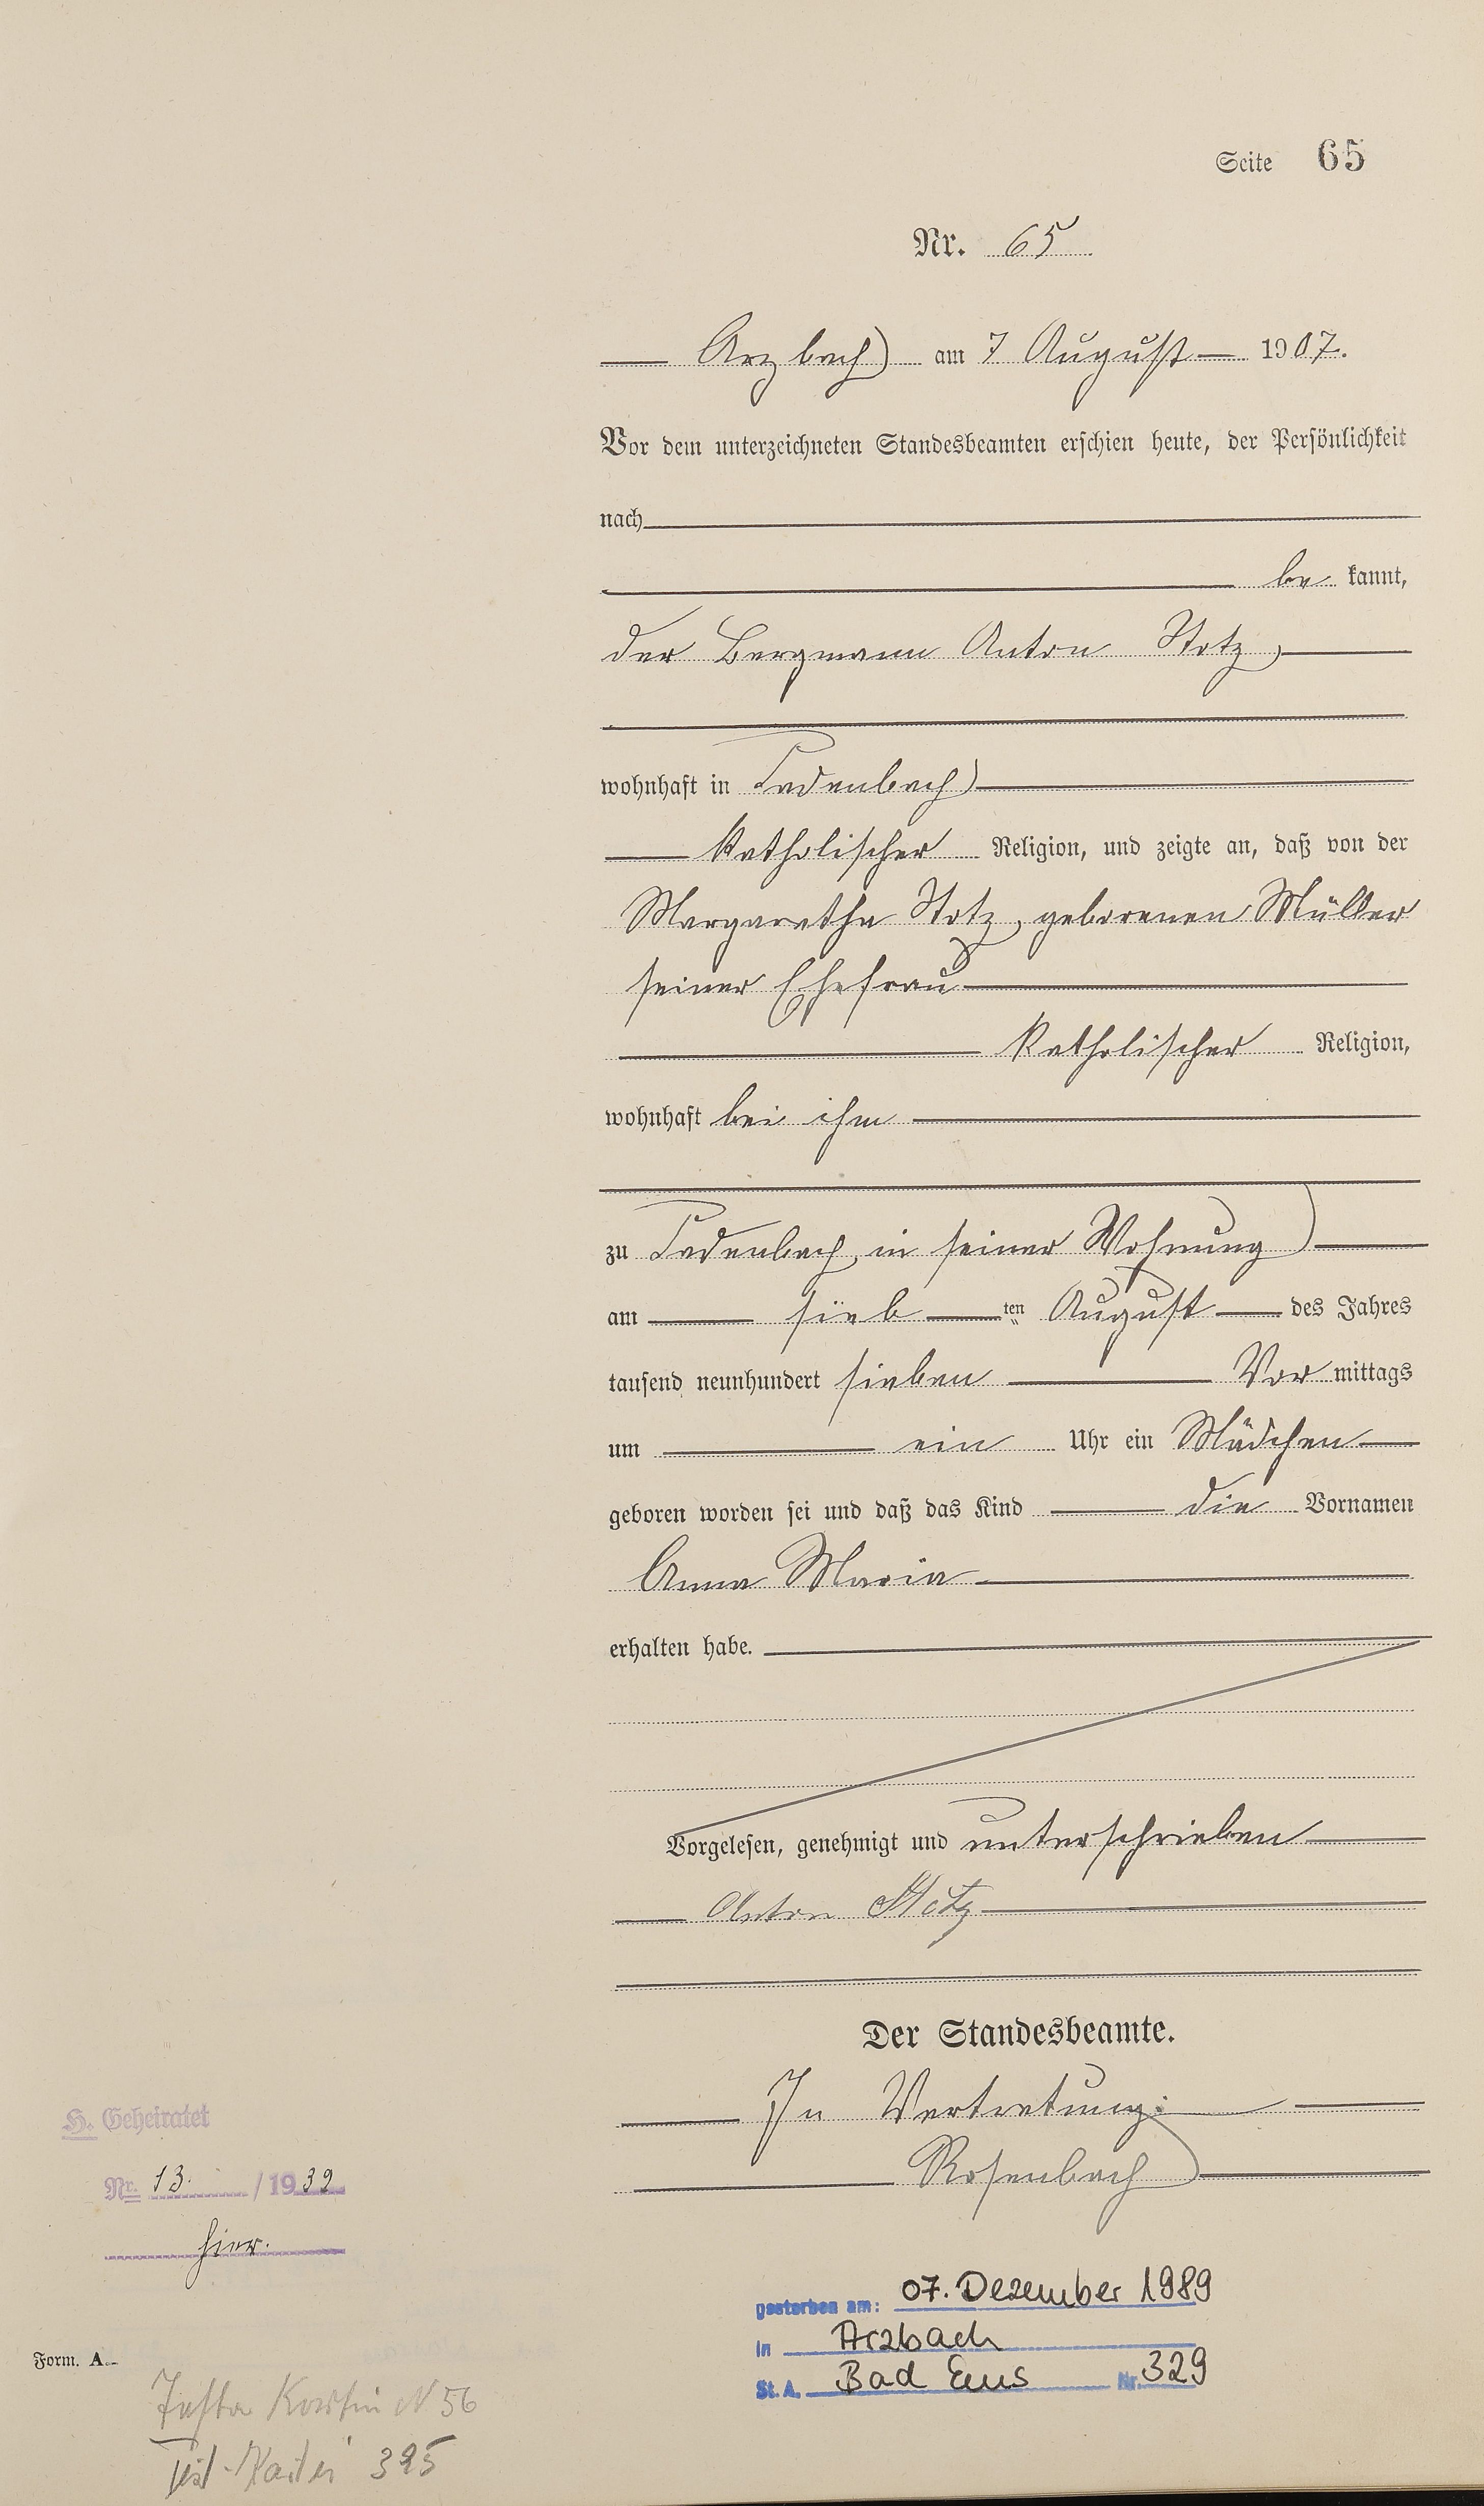 Seite 65
Nr. 65
Arzbach am 7 August 1907.
Vor dem unterzeichneten Standesbeamten erschien heute, der Persönlichkeit
nach
be kannt,
der Bergmann Anton Stotz,
wohnhaft in Kadenbach
katholischer Religion, und zeigte an, daß von der
Margaretha Stotz, geborenen Müller
seiner Ehefrau
katholischer Religion,
wohnhaft bei ihm
zu Kadenbach, in seiner Wohnung
am sieb ten August des Jahres
tausend neunhundert sieben Vor mittags
um ein Uhr ein Mädchen
geboren worden sei und daß das Kind die Vornamen
Anna Maria
erhalten habe.
Vorgelesen, genehmigt und unterschrieben
Anton Stotz
Der Standesbeamte.
In Vertretung:
Rosenbach
H. Geheiratet
Nr. 13. / 1939
hier.
gestorben am: 07. Dezember 1989
in Arzbach
St. A. Bad Ems Nr. 329
Form. A.
N 56
395